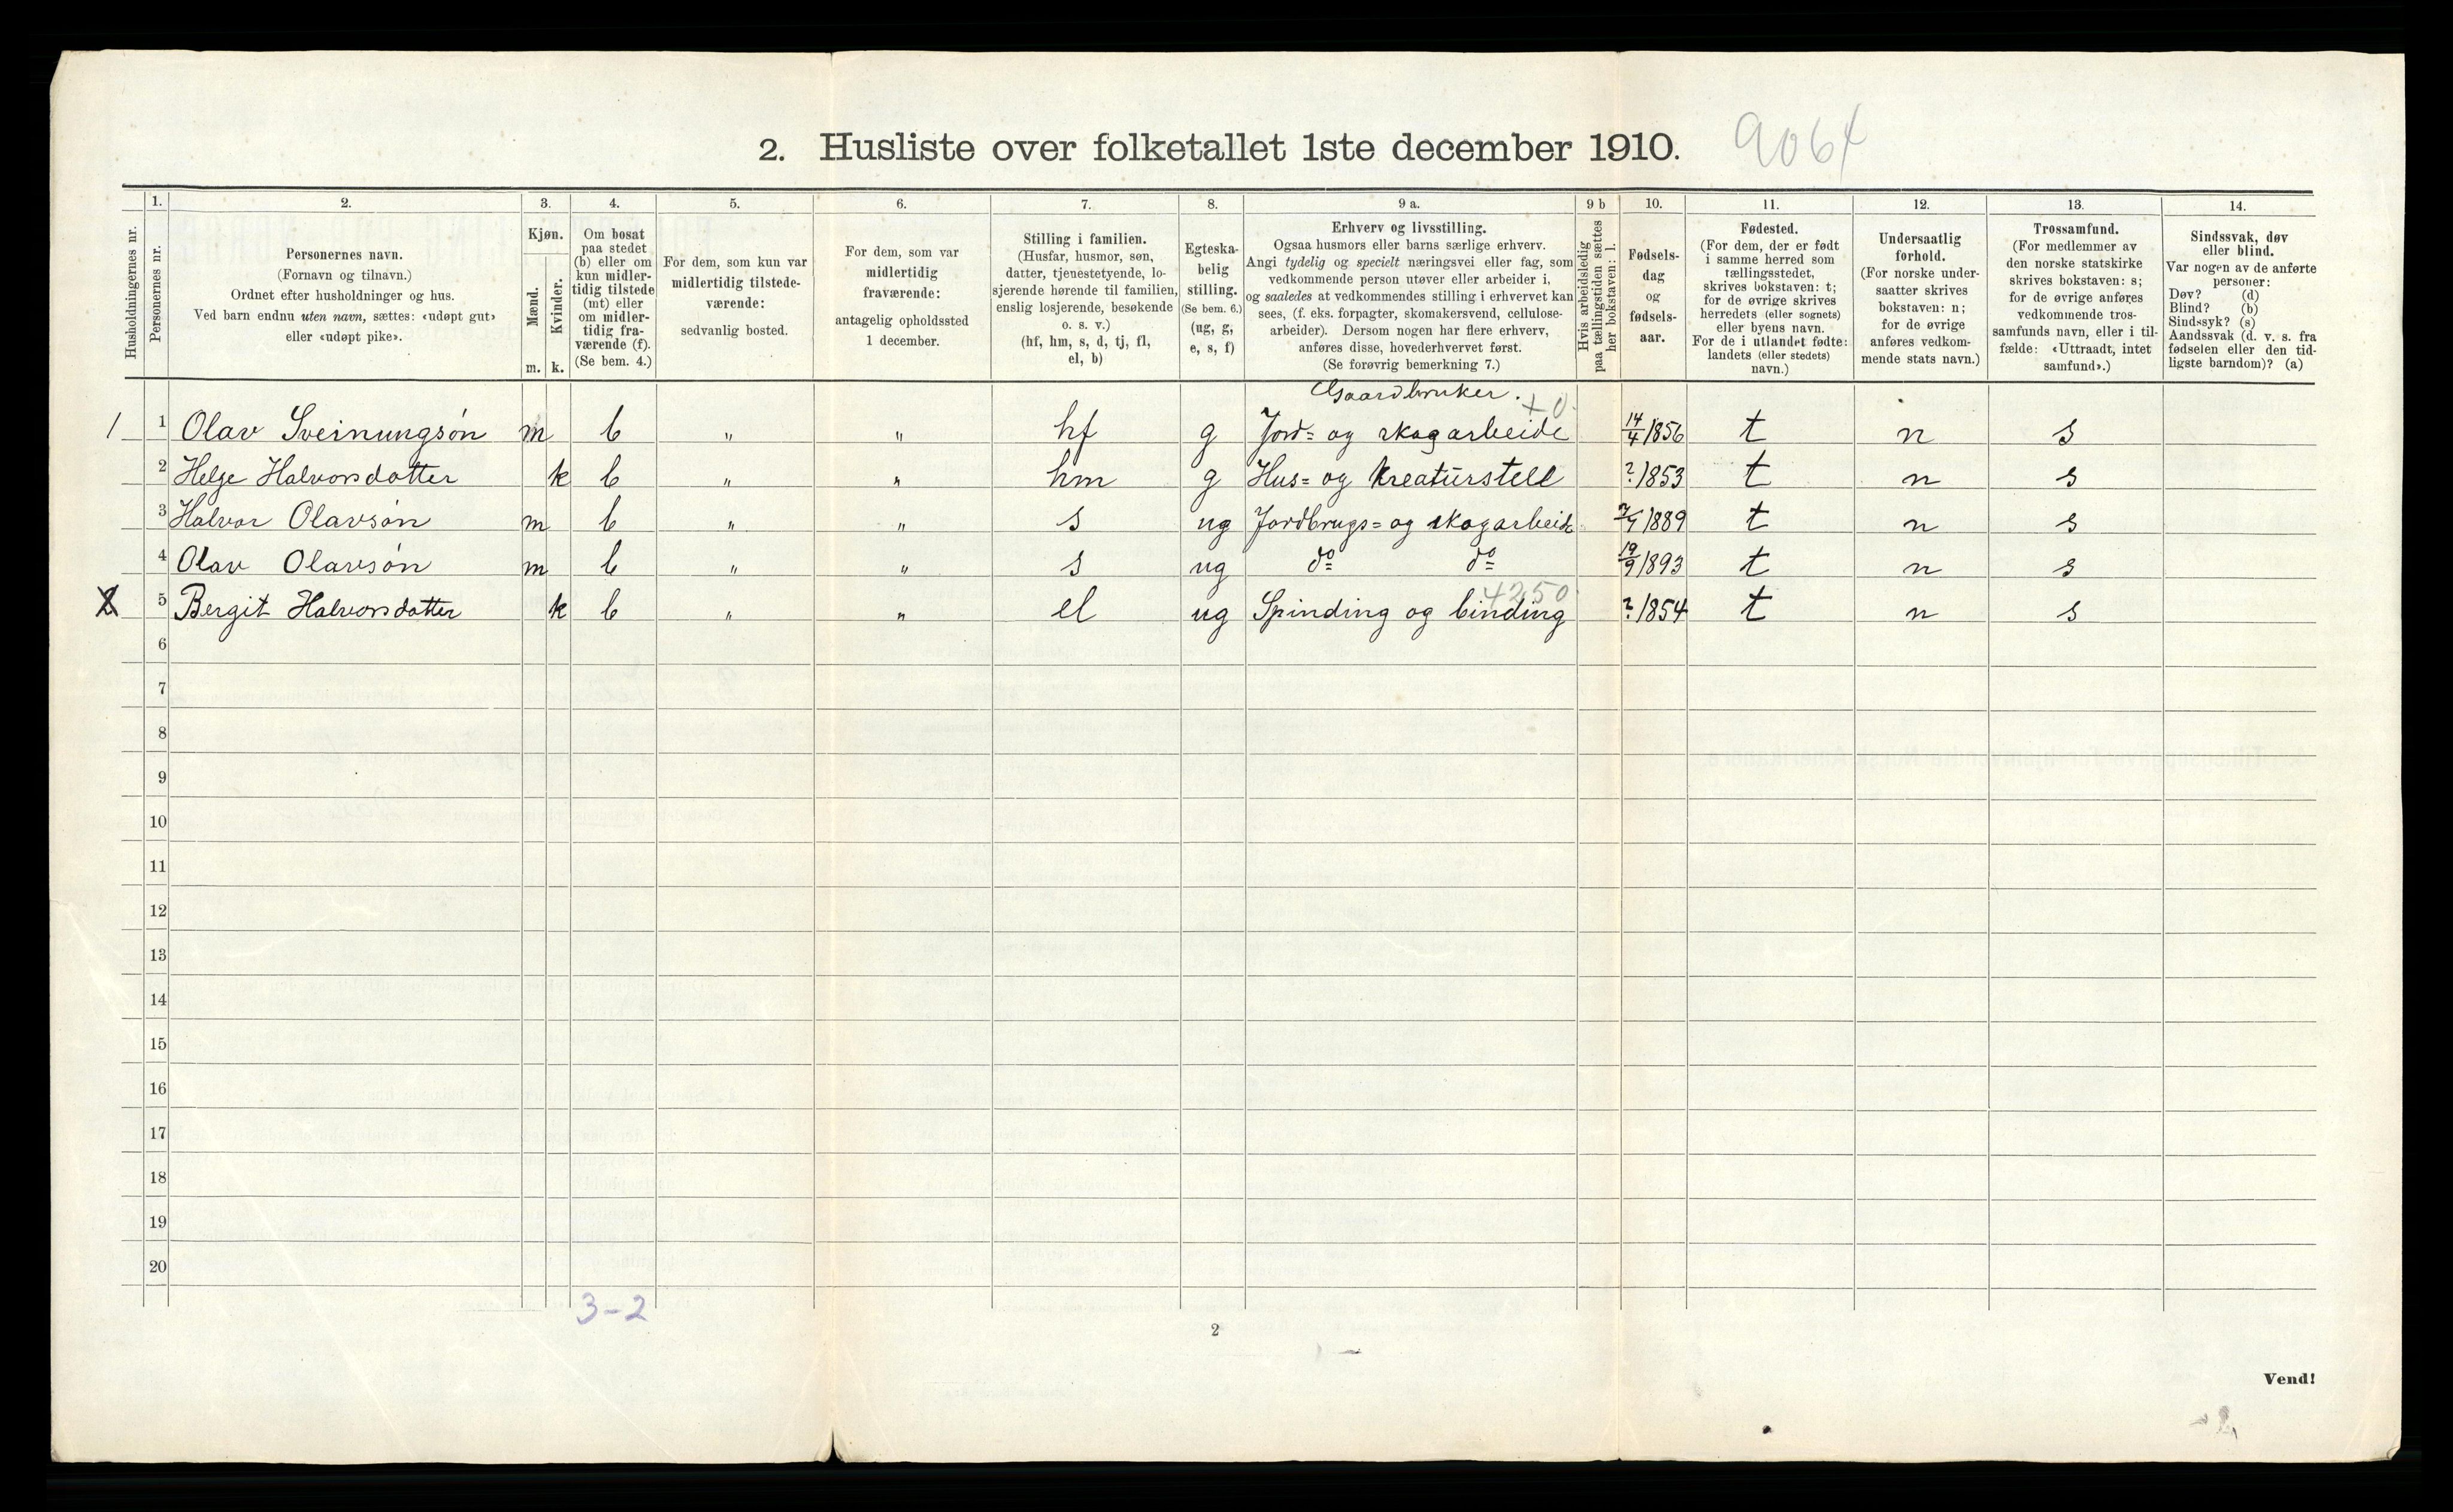 2. Husliste over folketallet 1ste december 1910. 9064
Husholdningernes nr.
1. Personernes nr.
2. Personernes navn.
(Fornavn og tilnavn.)
Ordnet efter husholdninger og hus.
Ved barn endnu uten navn, sættes: «udøpt gut»
eller «udøpt pike».
3. Kjøn.
Mænd. Kvinder.
m. k.
4. Om bosat
paa stedet
(b) eller om
kun midler-
tidig tilstede
(mt) eller
om midler-
tidig fra-
værende (f).
(Se bem. 4.)
5. For dem, som kun var
midlertidig tilstede-
værende:
sedvanlig bosted.
6. For dem, som var
midlertidig
fraværende:
antagelig opholdssted
1 december.
7. Stilling i familien.
(Husfar, husmor, søn,
datter, tjenestetyende, lo-
sjerende hørende til familien,
enslig losjerende, besøkende
o. s. v.)
(hf, hm, s, d, tj, fl,
el, b)
8. Egteska-
belig
stilling.
(Se bem. 6.)
(ug, g,
e, s, f)
9 a. Erhverv og livsstilling.
Ogsaa husmors eller barns særlige erhverv.
Angi tydelig og specielt næringsvei eller fag, som
vedkommende person utøver eller arbeider i,
og saaledes at vedkommendes stilling i erhvervet kan
sees, (f. eks. forpagter, skomakersvend, cellulose-
arbeider). Dersom nogen har flere erhverv,
anføres disse, hovederhvervet først.
(Se forøvrig bemerkning 7.)
9 b Hvis arbeidsledig
paa tællingstiden sættes
her bokstaven: l.
10. Fødsels-
dag
og
fødsels-
aar.
11. Fødested.
(For dem, der er født
i samme herred som
tællingsstedet,
skrives bokstaven: t;
for de øvrige skrives
herredets (eller sognets)
eller byens navn.
For de i utlandet fødte:
landets (eller stedets)
navn.)
12. Undersaatlig
forhold.
(For norske under-
saatter skrives
bokstaven: n;
for de øvrige
anføres vedkom-
mende stats navn.)
13. Trossamfund.
(For medlemmer av
den norske statskirke
skrives bokstaven: s;
for de øvrige anføres
vedkommende tros-
samfunds navn, eller i til-
fælde: «Uttraadt, intet
samfund».)
14. Sindssvak, døv
eller blind.
Var nogen av de anførte
personer:
Døv? (d)
Blind? (b)
Sindssyk? (s)
Aandssvak (d. v. s. fra
fødselen eller den tid-
ligste barndom)? (a)
Gaardbruker. +0.
1 1 Olav Sveinungsøn m b " " hf g Jord= og skogarbeide 14/4 1856 t n s
2 Helge Halvorsdatter k b " " hm g Hus= og Kreaturstell ? 1853 t n s
3 Halvor Olavsøn m b " " s ug Jordbrugs= og skogarbeide 1889 t n s
4 Olav Olavsøn m b " " s ug do do 19/9 1893 t n s
4250
2 5 Bergit Halvorsdatter k b " " el ug Spinding og binding ? 1854 t n s
6
7
8
9
10
11
12
13
14
15
16
17
18
19
20
3-2
2
Vend!